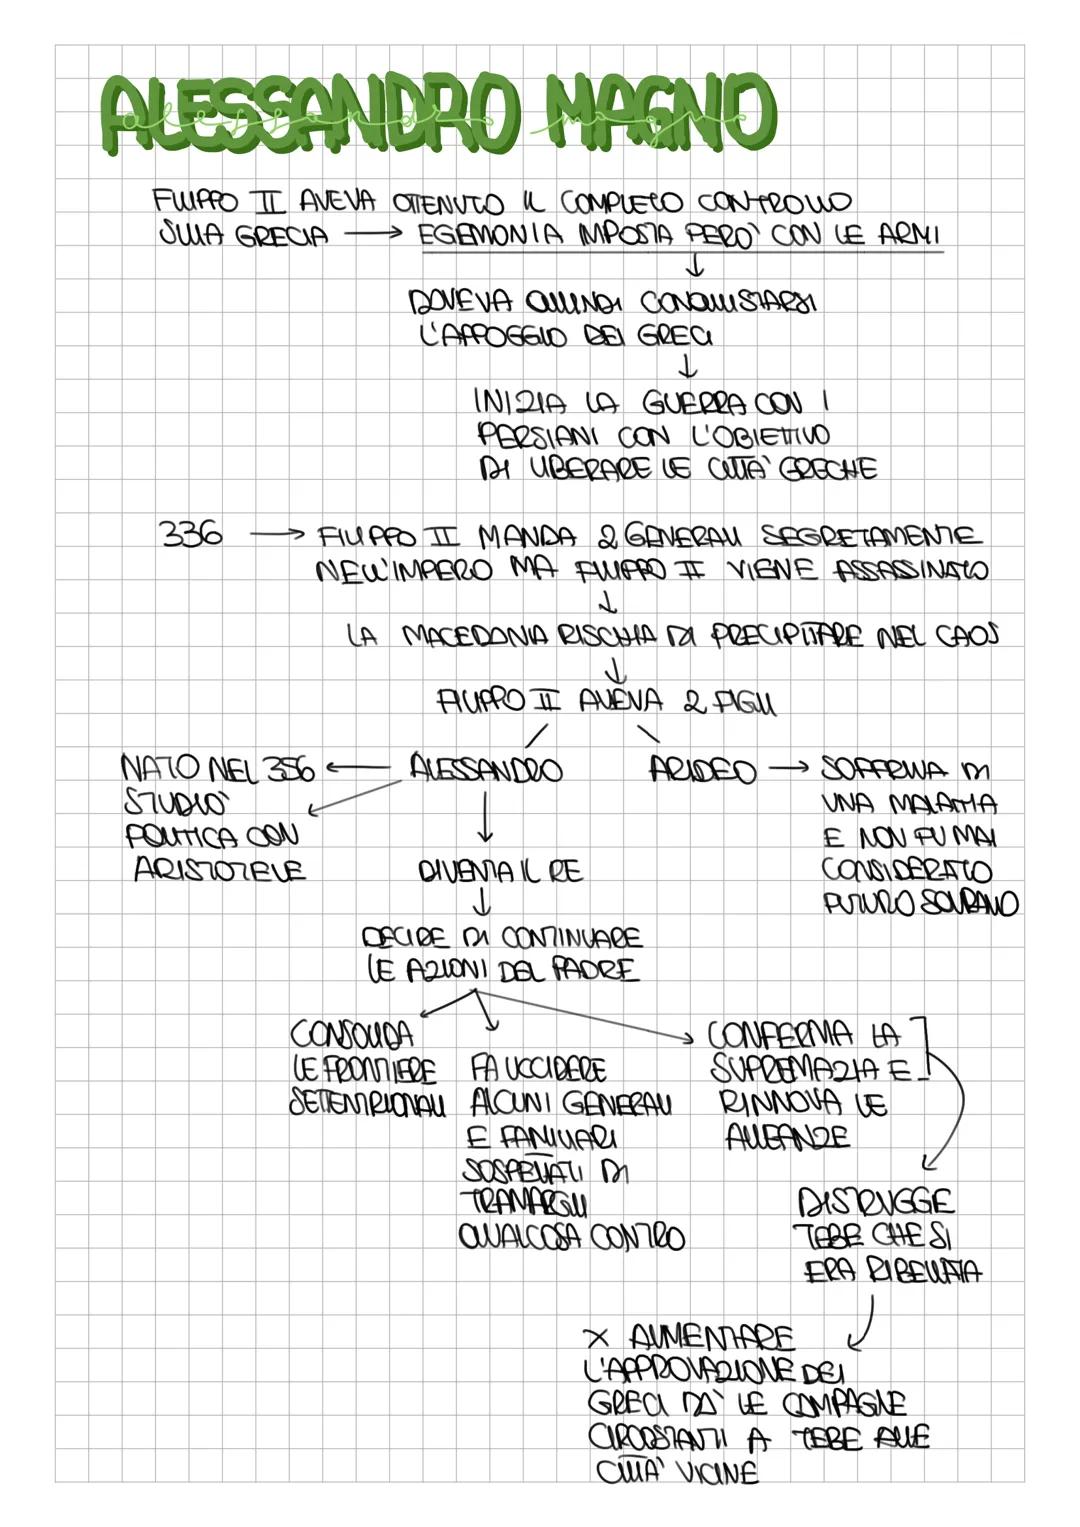 ALESSANDRO MAGNO
alessandro magno
FILIPPO II AVEVA OTTENUTO IL COMPLETO CONTROLLO
SULLA GRECIA → EGEMONIA IMPOSTA PERO' CON LE ARMI
↓
DOVEVA QUINDI CONQUISTARSI
L'APPOGGIO DEI GRECI
↓
INIZIA LA GUERRA CON I
PERSIANI CON L'OBIETTIVO
DI LIBERARE LE CITTA' GRECHE
336 → FILIPPO II MANDA 2 GENERALI SEGRETAMENTE
NELL'IMPERO MA FILIPPO II VIENE ASSASSINATO
↓
LA MACEDONIA RISCHIA DI PRECIPITARE NEL CAOS
↓
FILIPPO II AVEVA 2 FIGLI
NATO NEL 356 ← ALESSANDRO
STUDIO'
POLITICA CON
ARISTOTELE
ARIDEO → SOFFRIVA DI
UNA MALATTIA
E NON FU MAI
CONSIDERATO
FUTURO SOVRANO
↓
DIVENTA IL RE
↓
DECIDE DI CONTINUARE
LE AZIONI DEL PADRE
CONSOLIDA
LE FRONTIERE
SETTENTRIONALI
FA UCCIDERE
ALCUNI GENERALI
E FAMILIARI
SOSPETTATI DI
TRAMARGLI
QUALCOSA CONTRO
CONFERMA LA
SUPREMAZIA E
RINNOVA LE
ALLEANZE
DISTRUGGE
TEBE CHE SI
ERA RIBELLATA
X AUMENTARE
L'APPROVAZIONE DEI
GRECI DA' LE CAMPAGNE
CIRCOSTANTI A TEBE ALLE
CITTA' VICINE